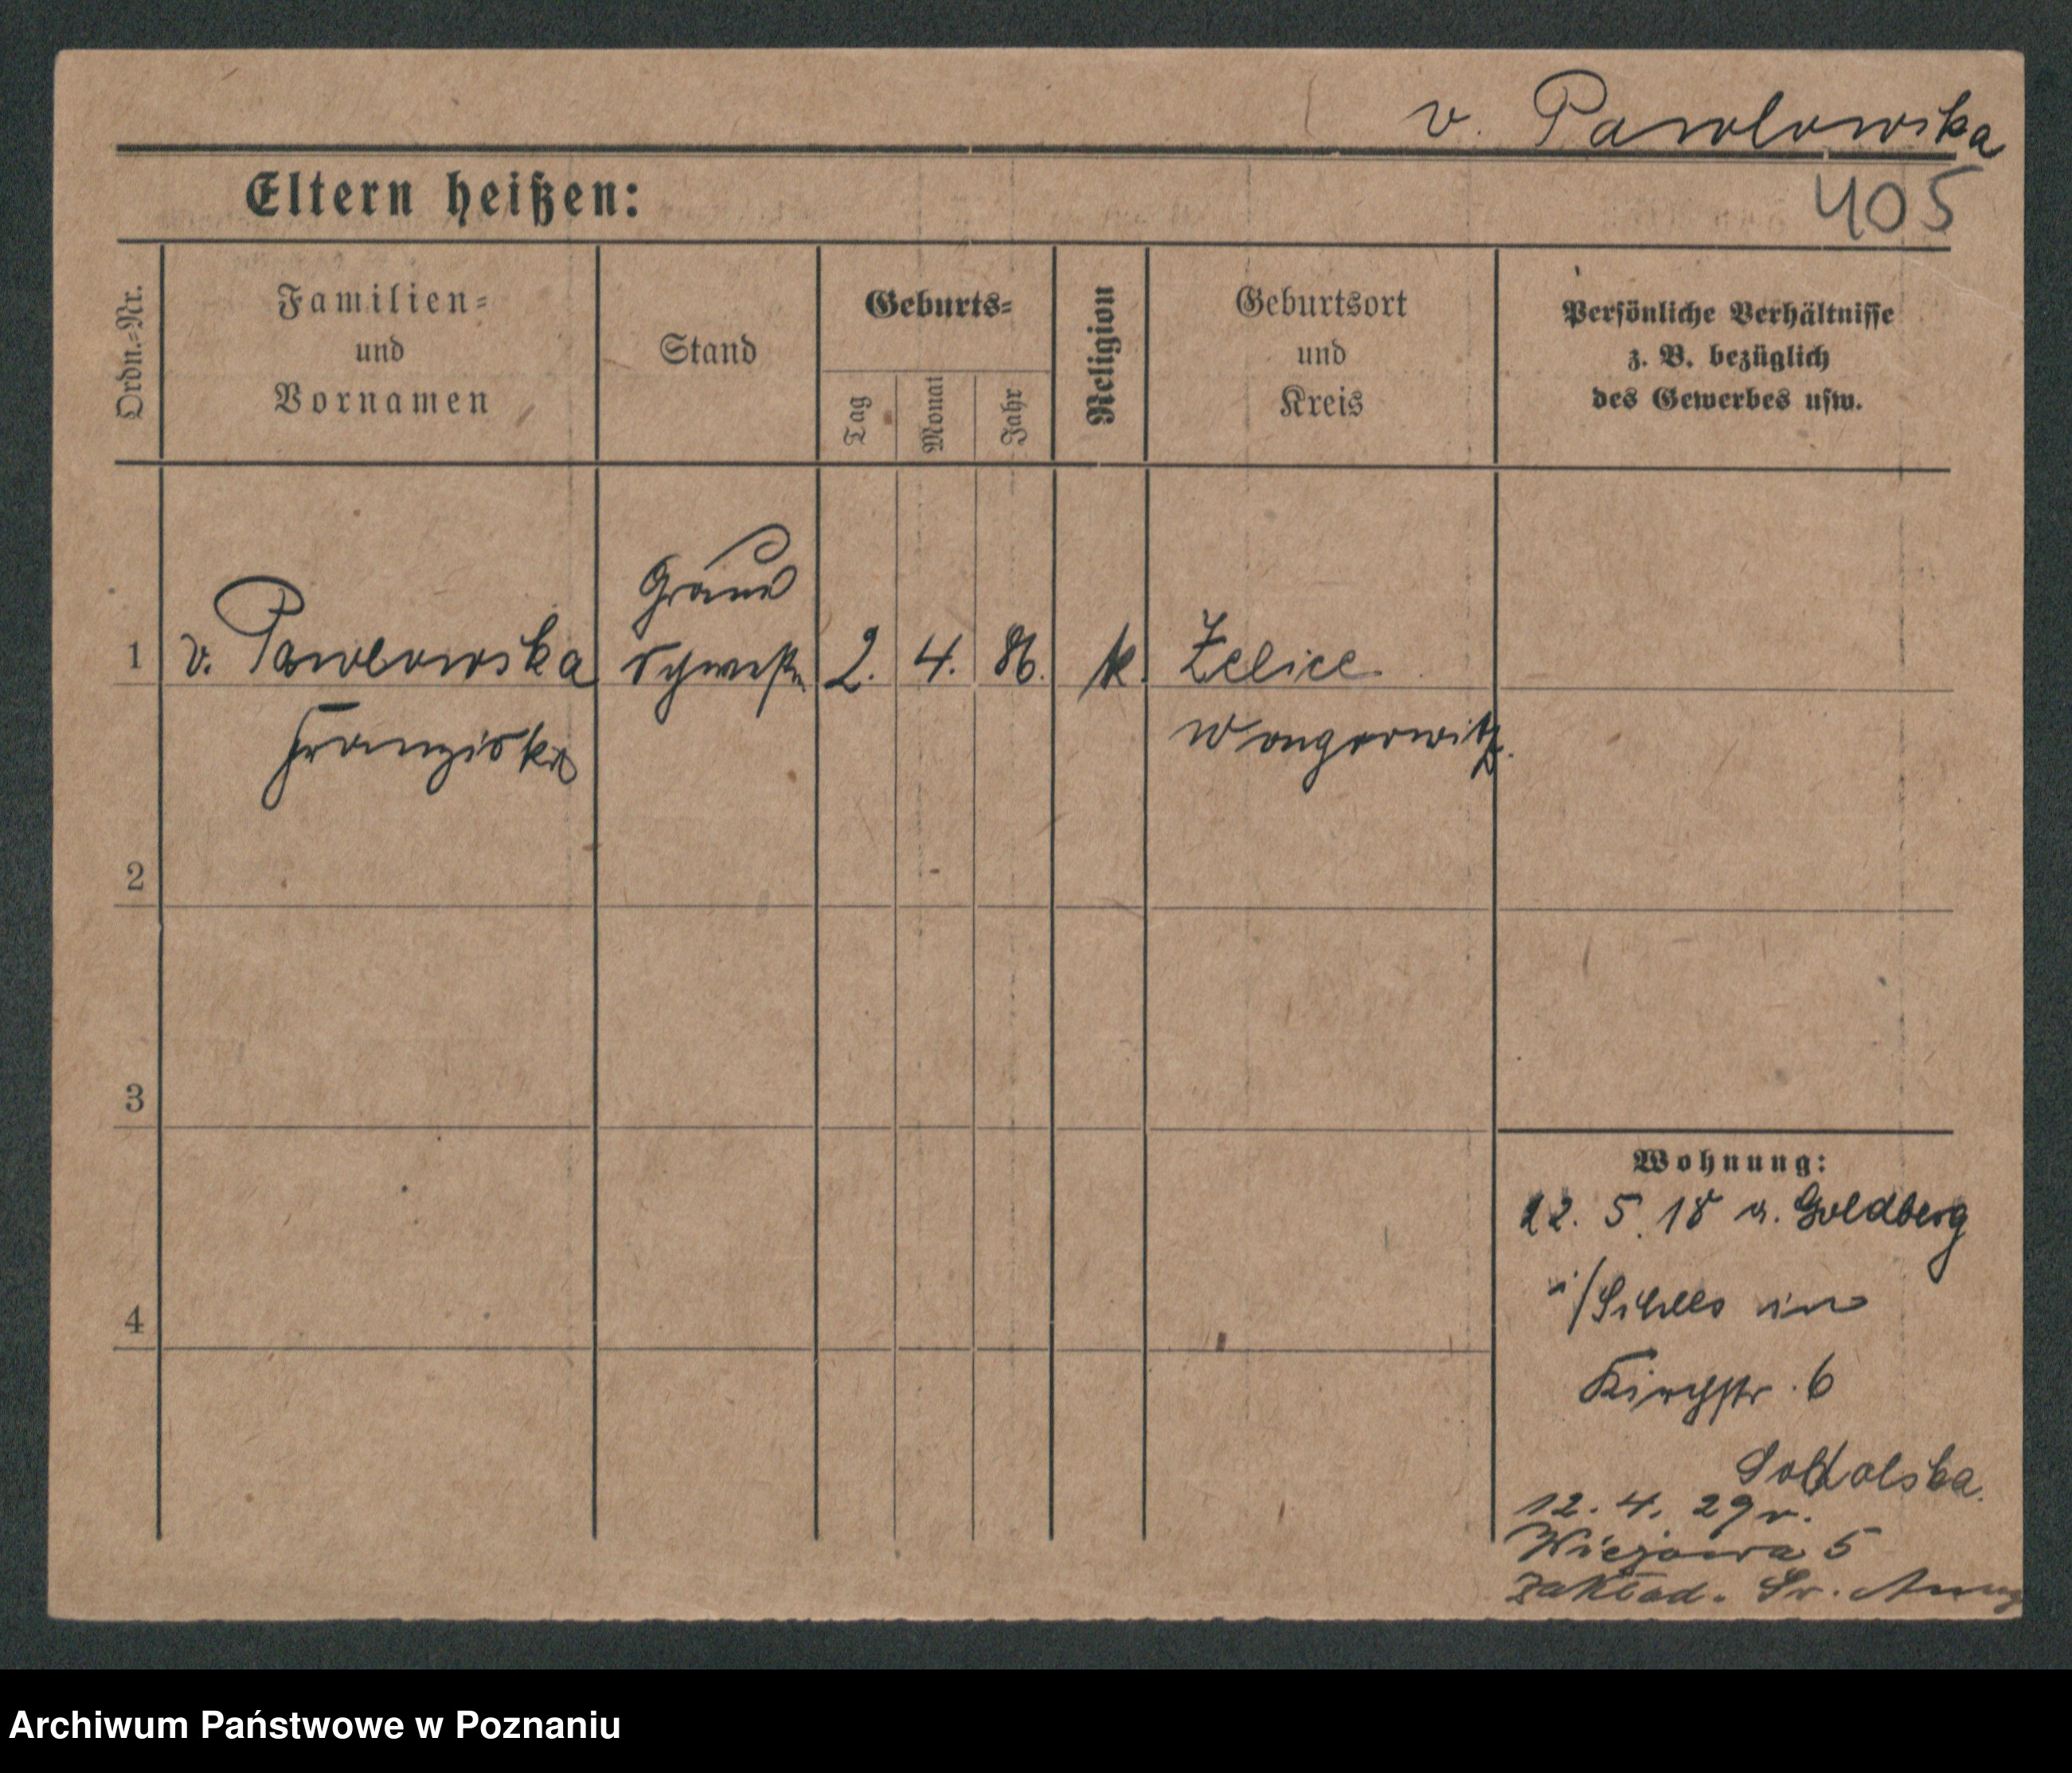 v. Pawlowska
405
Eltern heißen:
Ordn.-Nr.
Familien-
und
Vornamen
Stand
Geburts-
Tag
Monat
Jahr
Religion
Geburtsort
und
Kreis
Persönliche Verhältnisse
z. B. bezüglich
des Gewerbes usw.
1
v. Pawlowska
Franziska
Graue
Schwester
2.
4.
86.
k.
Zelice
Wongrowitz.
2
3
4
Wohnung:
22. 5. 18 a. Goldberg
i/Schles in
Kirchstr. 6
12. 4. 29 r.
Wiezowa 5
Zakład. Św. Anny
Archiwum Państwowe w Poznaniu